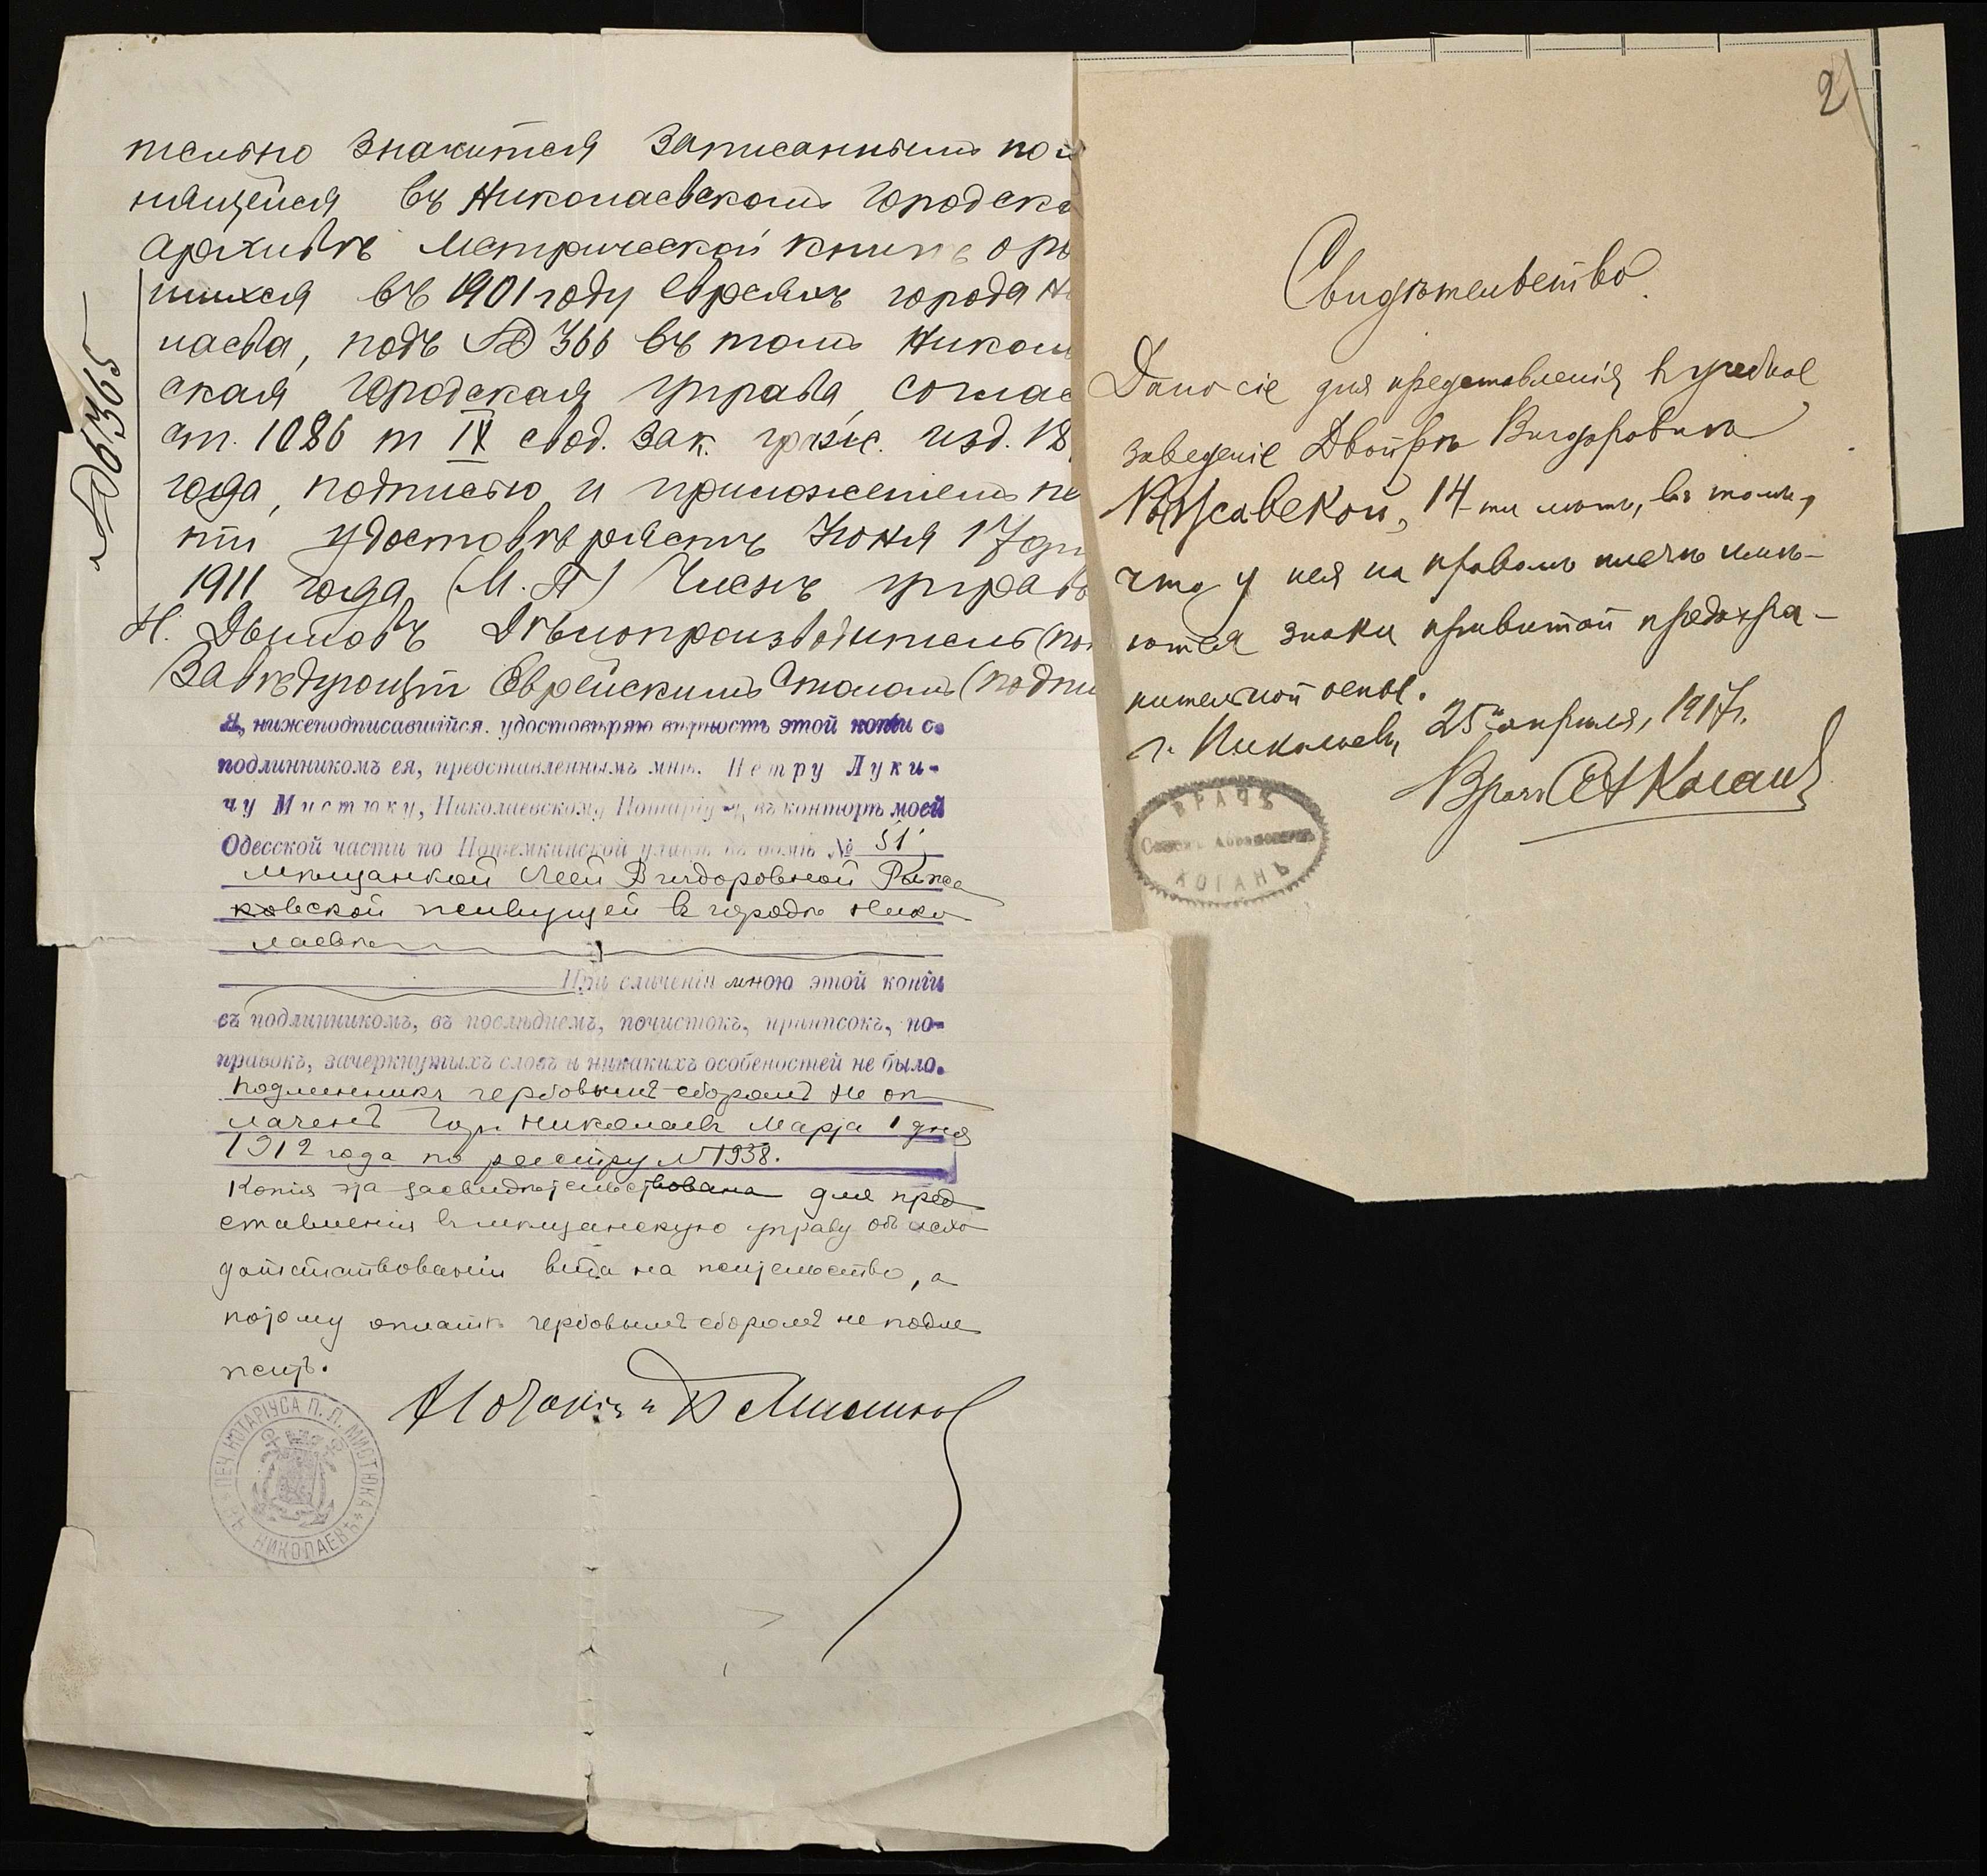 тельно значится записаннымъ по
нящейся въ Николаевскомъ городск
архивѣ метрической книгѣ о р
шихся въ 1901 году евреяхъ города Н
лаева, подъ № 366 въ томъ Никол
ская городская управа, соглас
ст. 1086 т IX свод. зак. гражс. изд. 18
года, подписью и приложеніемъ пе
ти удостовѣряетъ Іюня 17 дн
1911 года, (М. П) Членъ управ
Н. Дымовъ Дѣлопроизводитель (по
Завѣдующій Еврейскимъ столомъ (подпи
№ 6365
Я, нижеподписавшійся, удостовѣряю вѣрность этой копіи съ
подлинникомъ ея, представленнымъ мнѣ, Петру Луки-
чу Мистюку, Николаевскому Нотаріусу, въ конторѣ моей
Одесской части по Потемкинской улицѣ въ домѣ № 51
мѣщанкой Леей Вигдоровной Рыжа
ковской живущей въ городѣ Нико
лаевѣ
При сличеніи мною этой копіи
съ подлинникомъ, въ послѣднемъ, почистокъ, приписокъ, по-
правокъ, зачеркнутыхъ словъ и никакихъ особеностей не было.
Подлинникъ гербовымъ сборомъ не оп
лаченъ Гор. Николаевъ Марта 1 дня
1912 года по реестру № 1938.
Копія эта засвидѣтельствована для пред
ставленія въ мѣщанскую управу объ исхо
датайствованіи вида на жительство, а
потому оплатѣ гербовымъ сборомъ не подле
житъ.
Нотаріусъ П Мистюк
ПЕЧ. НОТАРІУСА П. Л. МИСТЮКА ВЪ НИКОЛАЕВѢ
2
Свидѣтельство.
Дано сіе для представленія въ учебное
заведеніе Двойрѣ Вигдоровнѣ
Рыжавской, 14-ти лѣтъ, въ томъ,
что у нея на правомъ плечѣ имѣ-
ются знаки привитой предохра-
нительной оспы.
г. Николаевъ, 25 апрѣля, 1917 г.
Врачъ СА Коганъ
ВРАЧЪ
Абрамовичъ
КОГАНЪ